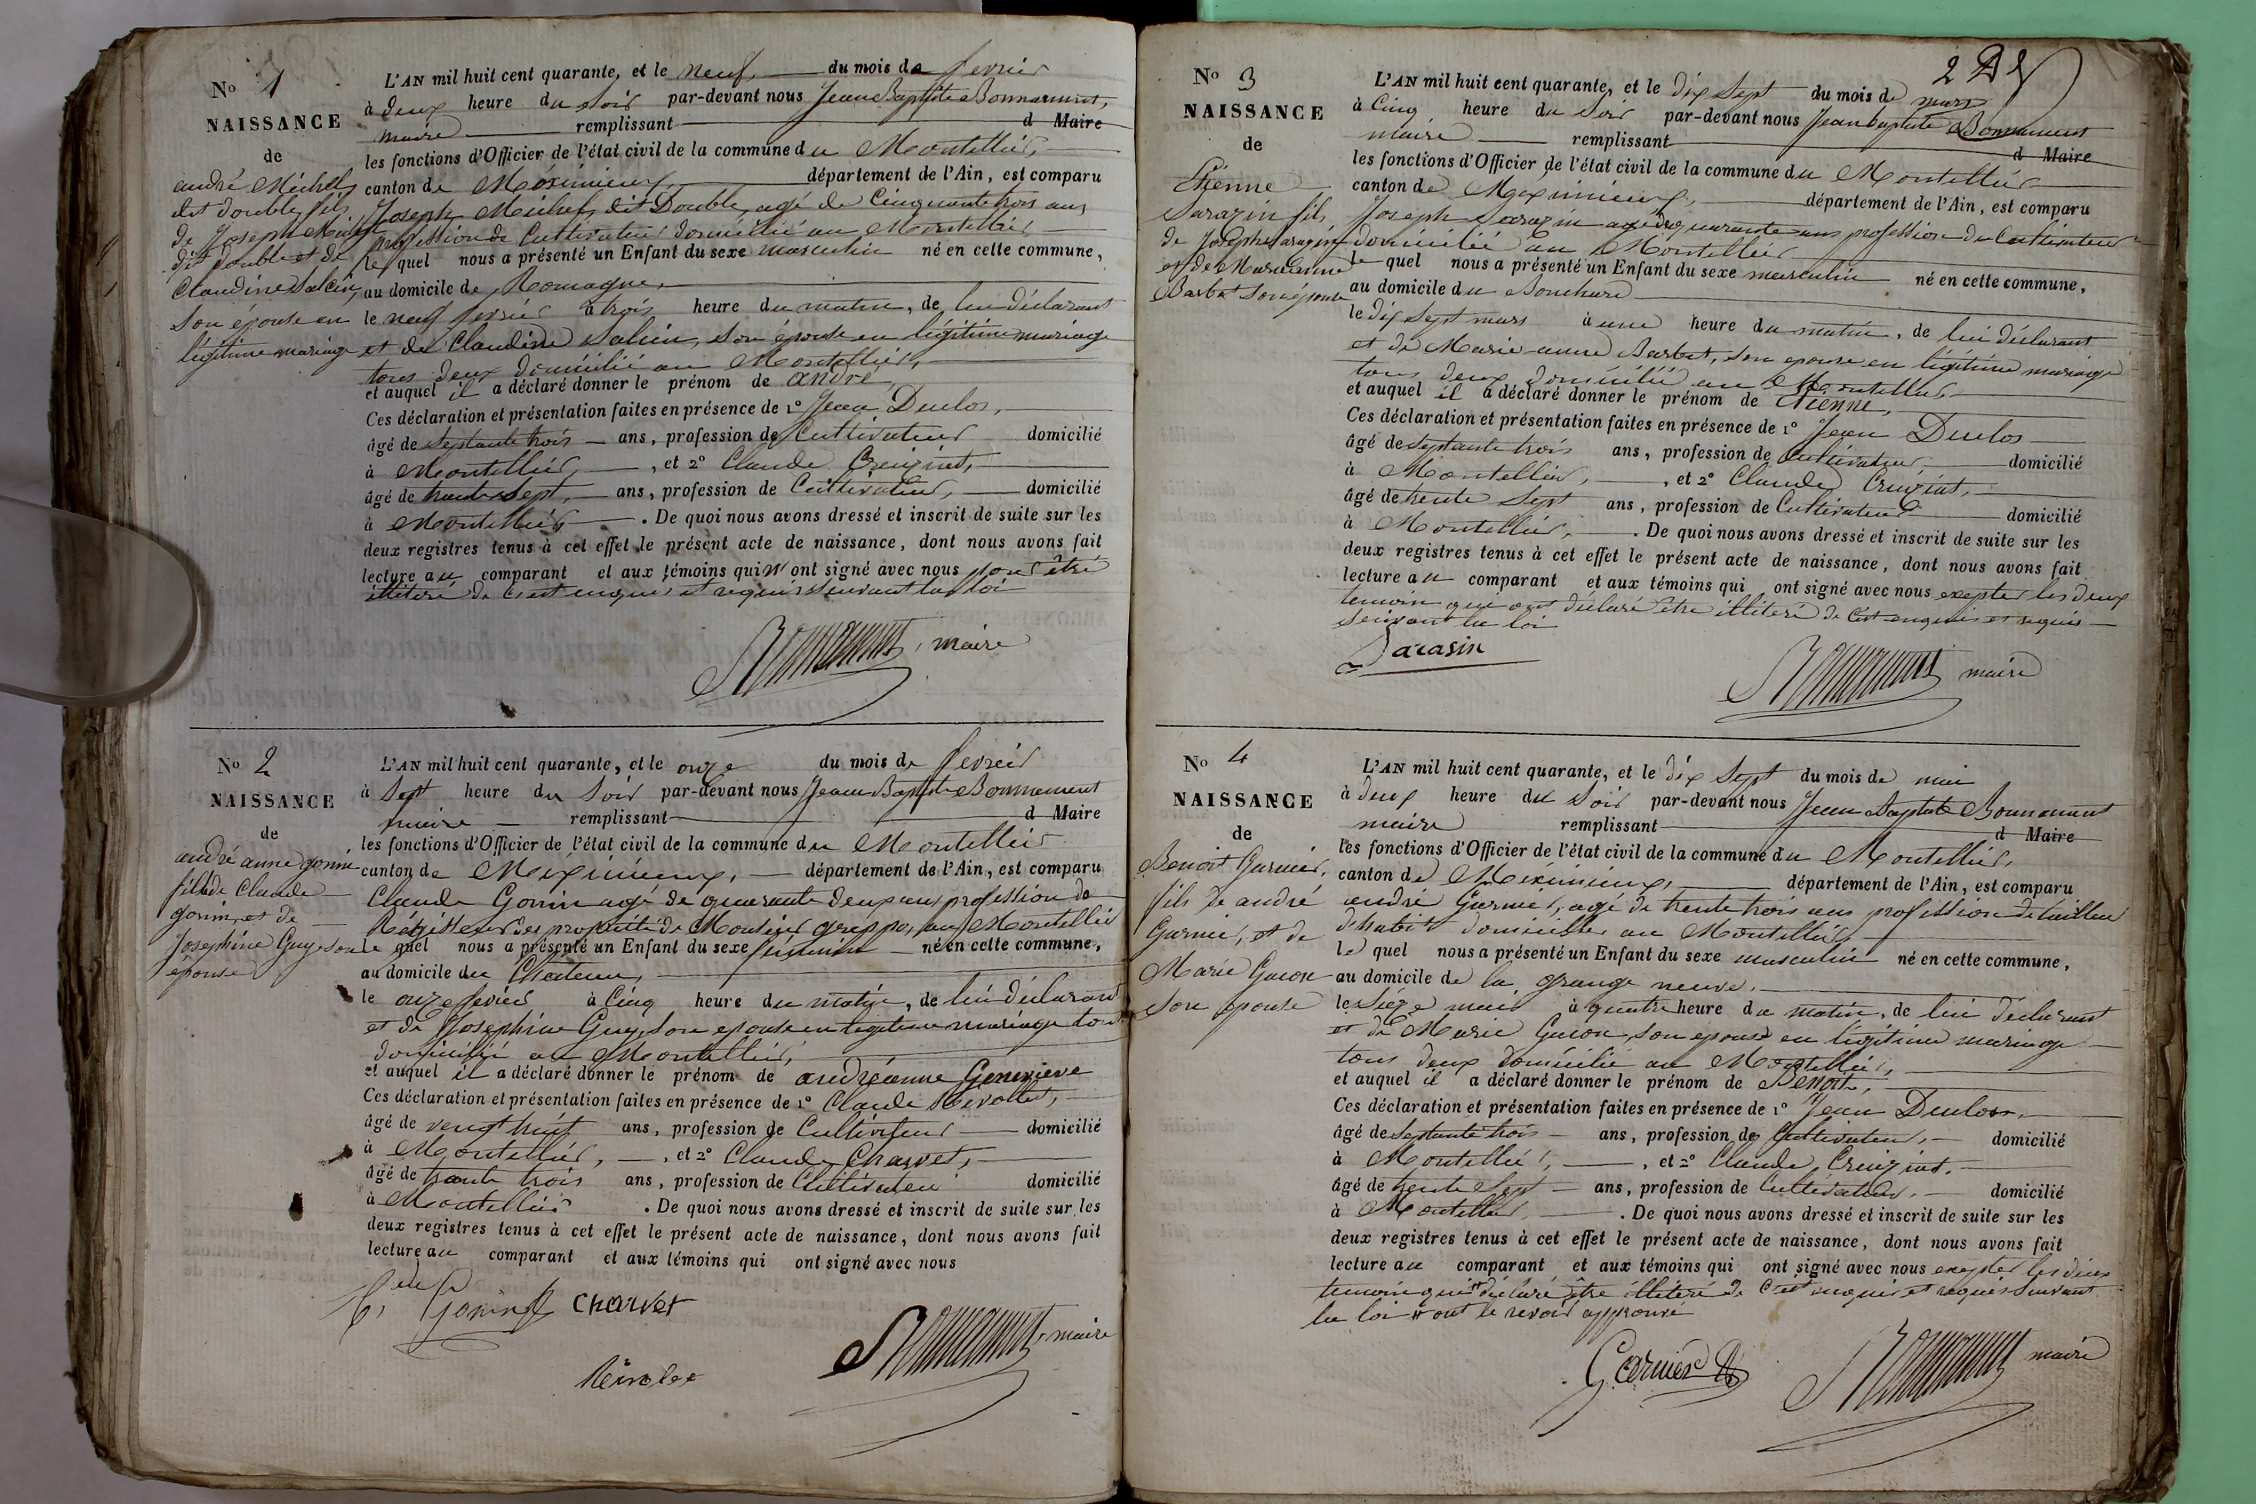 No 1
NAISSANCE
de
andré Michel
dit double fils
de Joseph Michel
dit double et de
Claudine Salein
son épouse en
légitime mariage
L'AN mil huit cent quarante, et le neuf du mois de fevrier
à deux heure du soir par-devant nous Jean Baptiste Bonnamant,
maire remplissant d Maire
les fonctions d'Officier de l'état civil de la commune du Montellier,
canton de Meximieux, département de l'Ain, est comparu
Joseph Michel dit Double, agé de Cinquante trois ans
profession de Cultivateur domicilié au Montellier
le quel nous a présenté un Enfant du sexe masculin né en cette commune,
au domicile de Romagne,
le neuf fevrier à trois heure du matin, de lui déclarant
et de Claudine Salein, son épouse en légitime mariage
tous deux domicilié au Montellier,
et auquel il a déclaré donner le prénom de andré
Ces déclaration et présentation faites en présence de 1° Jean Duclos,
âgé de septante trois ans, profession de Cultivateur domicilié
à Montellier, , et 2° Claude Creuzint,
âgé de trente sept, ans, profession de Cultivateur, domicilié
à Montellier . De quoi nous avons dressé et inscrit de suite sur les
deux registres tenus à cet effet le présent acte de naissance, dont nous avons fait
lecture au comparant et aux témoins qui n'ont signé avec nous pour être
illiteré de c'est enquis et requis suivant la loi
Bonnamant, maire
No 2
NAISSANCE
de
andré anne gonin
fille de Claude
gonin, et de
Josephine Guy, son
épouse
L'AN mil huit cent quarante, et le onze du mois de fevrier
à sept heure du soir par-devant nous Jean Baptiste Bonnamant
maire remplissant d Maire
les fonctions d'Officier de l'état civil de la commune du Montellier
canton de Meximieux, département de l'Ain, est comparu
Claude Gonin agé de quarante deux ans, profession de
Régisseur des proprieté de Monsieur greppo, au Montellier
le quel nous a présenté un Enfant du sexe feminin né en cette commune,
au domicile du Chateau,
le onze fevrier à Cinq heure du matin, de lui déclarant
et de Josephine Guy, son epouse en legitime mariage tous
domicilié au Montellier,
et auquel il a déclaré donner le prénom de andréanne Geneviève
Ces déclaration et présentation faites en présence de 1° Claude Révollet,
âgé de vengt huit ans, profession de Cultivateur domicilié
à Montellier, , et 2° Claude Charvet,
âgé de trante trois ans, profession de Cultivateur domicilié
à Montellier . De quoi nous avons dressé et inscrit de suite sur les
deux registres tenus à cet effet le présent acte de naissance, dont nous avons fait
lecture au comparant et aux témoins qui ont signé avec nous
Gonin Charvet
Bonnamant, maire
No 3
NAISSANCE
de
Etienne
Sarazin fils
de Joseph Sarazin
et de Marie anne
Barbat son épouse
2
L'AN mil huit cent quarante, et le dix sept du mois de mars
à Cinq heure du soir par-devant nous Jean baptiste Bonnamant
maire remplissant d Maire
les fonctions d'Officier de l'état civil de la commune du Montellier
canton de Meximieux, département de l'Ain, est comparu
Joseph Sarazin agé de quarante ans profession de Cultivateur
domicilié au Montellier
le quel nous a présenté un Enfant du sexe masculin né en cette commune,
au domicile du Bouchard
le dix sept mars à une heure du matin, de lui déclarant
et de Marie anne Barbat, son epouse en légitime mariage
tous deux domicilié au Montellier
et auquel il a déclaré donner le prénom de Etienne,
Ces déclaration et présentation faites en présence de 1° Jean Duclos
âgé de septante trois ans, profession de Cultivateur, domicilié
à Montellier, , et 2° Claude Creuzint,
âgé de trente sept ans, profession de Cultivateur domicilié
à Montellier, . De quoi nous avons dressé et inscrit de suite sur les
deux registres tenus à cet effet le présent acte de naissance, dont nous avons fait
lecture au comparant et aux témoins qui ont signé avec nous exepter les deux
temoin qui ont déclaré être illiteré de c'est enquis et requis
suivant la loi
Sarasin
Bonnamant maire
No 4
NAISSANCE
de
Benoit Garnier,
fils de andré
Garnier, et de
Marie Guion
son epouse
L'AN mil huit cent quarante, et le dix sept du mois de mai
à deux heure du soir par-devant nous Jean Baptiste Bonnamant
maire remplissant d Maire
les fonctions d'Officier de l'état civil de la commune du Montellier,
canton de Meximieux, département de l'Ain, est comparu
andré Garnier, agé de trente trois ans profession de tailleur
d'habit domicilié au Montellier
le quel nous a présenté un Enfant du sexe masculin né en cette commune,
au domicile de la grange neuve,
le seize mai à quatre heure du matin, de lui déclarant
et de Marie Guion, son epouse en légitime mariage
tous deux domicilié au Montellier,
et auquel il a déclaré donner le prénom de Benoit,
Ces déclaration et présentation faites en présence de 1° Jean Duclos,
âgé de septante trois ans, profession de Cultivateur, domicilié
à Montellier, , et 2° Claude Creuzint,
âgé de trente sept ans, profession de Cultivateur, domicilié
à Montellier, . De quoi nous avons dressé et inscrit de suite sur les
deux registres tenus à cet effet le présent acte de naissance, dont nous avons fait
lecture au comparant et aux témoins qui ont signé avec nous exepter les deux
temoin qui déclaré être illiteré de c'est enquis et requis suivant
la loi # ont le revoir approuvé
Garnier
Bonnamant maire